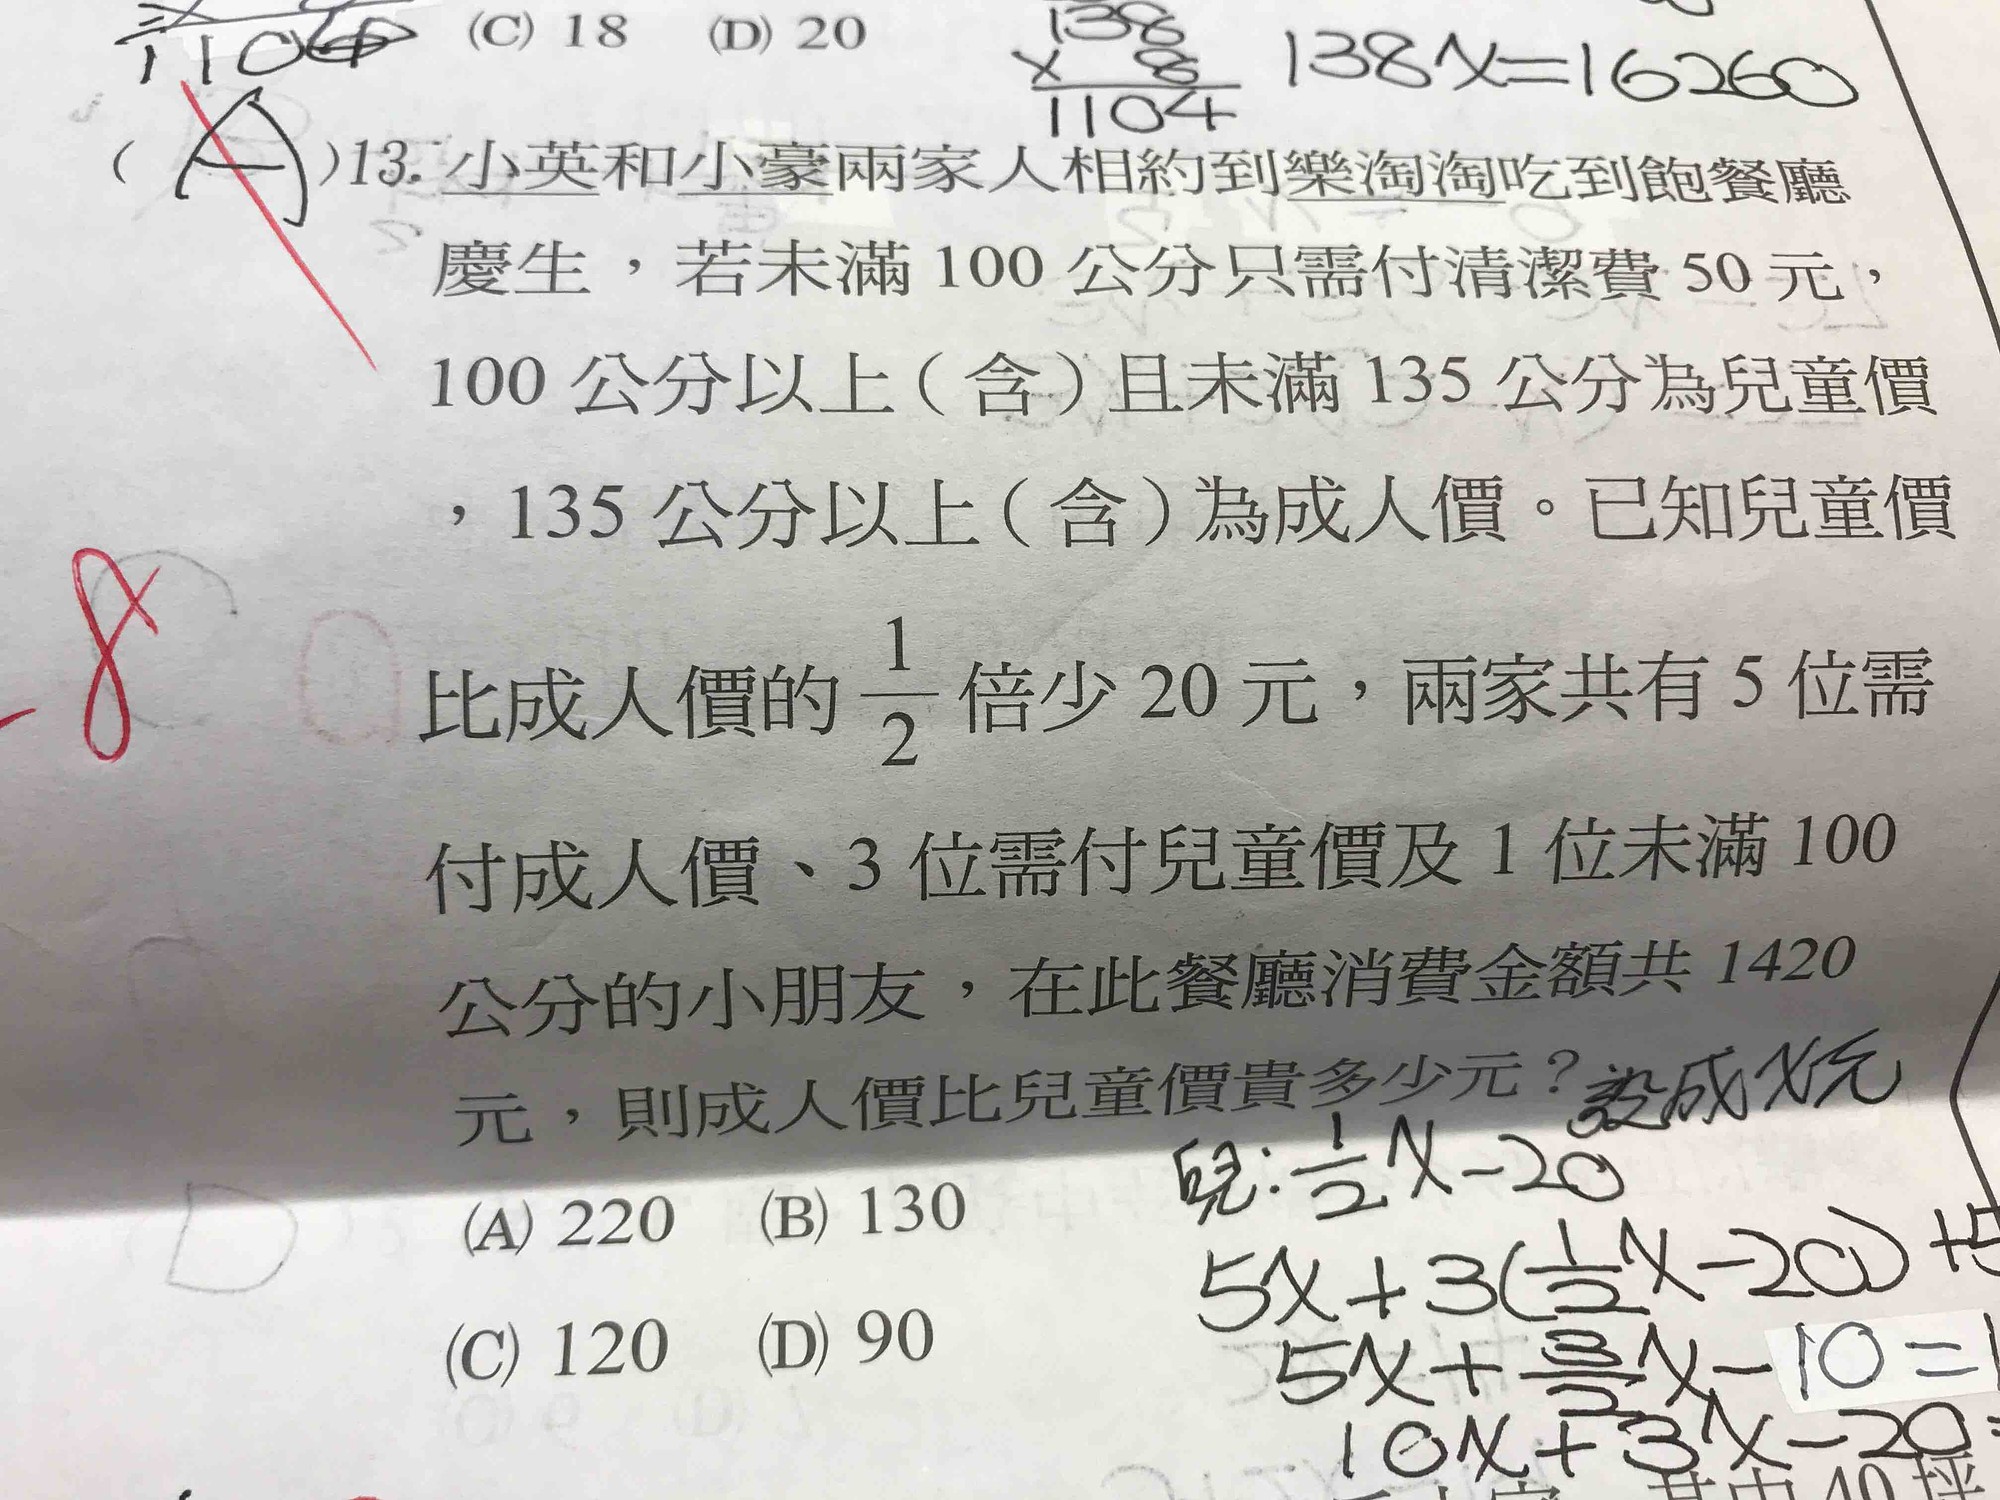 1104
(C) 18 (D) 20
138
× 8
1104
138x=16260
( A )13. 小英和小豪兩家人相約到樂淘淘吃到飽餐廳
慶生，若未滿 100 公分只需付清潔費 50 元，
100 公分以上（含）且未滿 135 公分為兒童價
，135 公分以上（含）為成人價。已知兒童價
-8
比成人價的 1/2 倍少 20 元，兩家共有 5 位需
付成人價、3 位需付兒童價及 1 位未滿 100
公分的小朋友，在此餐廳消費金額共 1420
元，則成人價比兒童價貴多少元？
設成x元
兒:1/2x-20
(A) 220 (B) 130
5x+3(1/2x-20)+5
(C) 120 (D) 90
5x+3/2x-10=1
10x+3x-20=
其中 40 坪